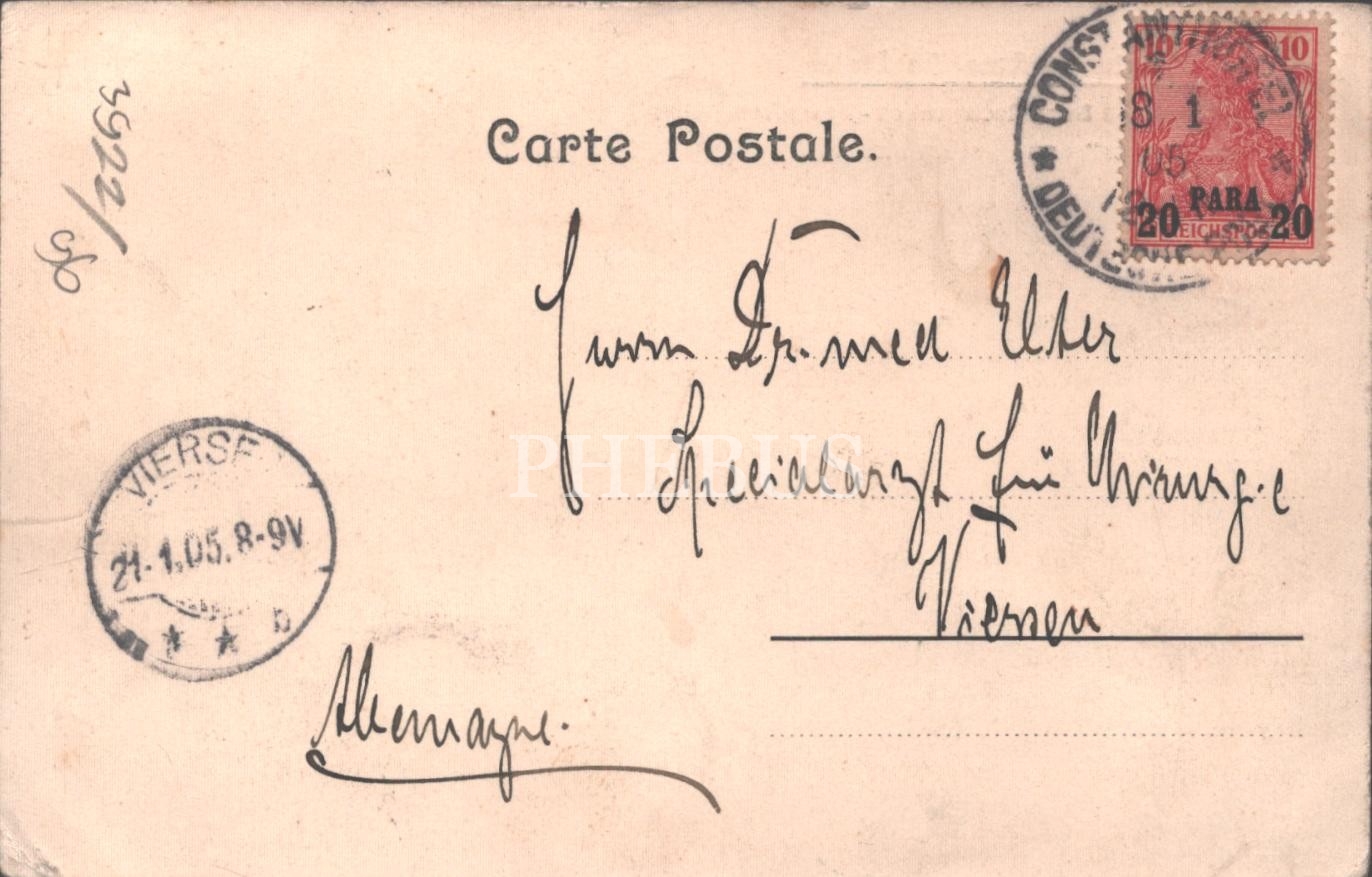 Carte Postale.
CONSTANTINOPEL
8 1
05
DEUTSCHE
10 10
PARA
20 20
REICHSPOST
3922/
Herrn Dr. med Elter
Specialarzt für Chirurgie
Viersen
Allemagne.
VIERSEN
21.1.05. 8-9V
* * b
PHEBUS